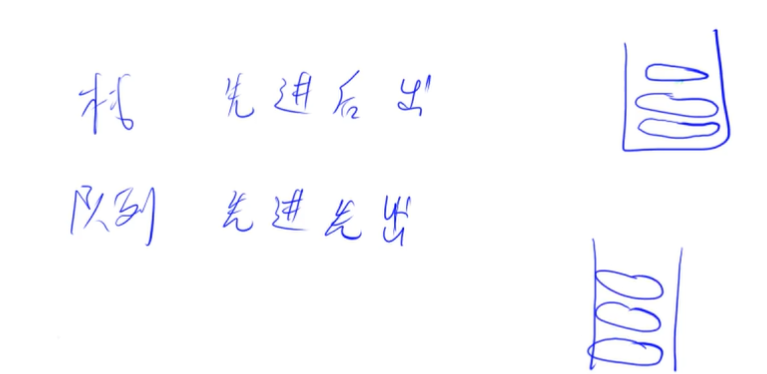 栈 先进后出
队列 先进先出